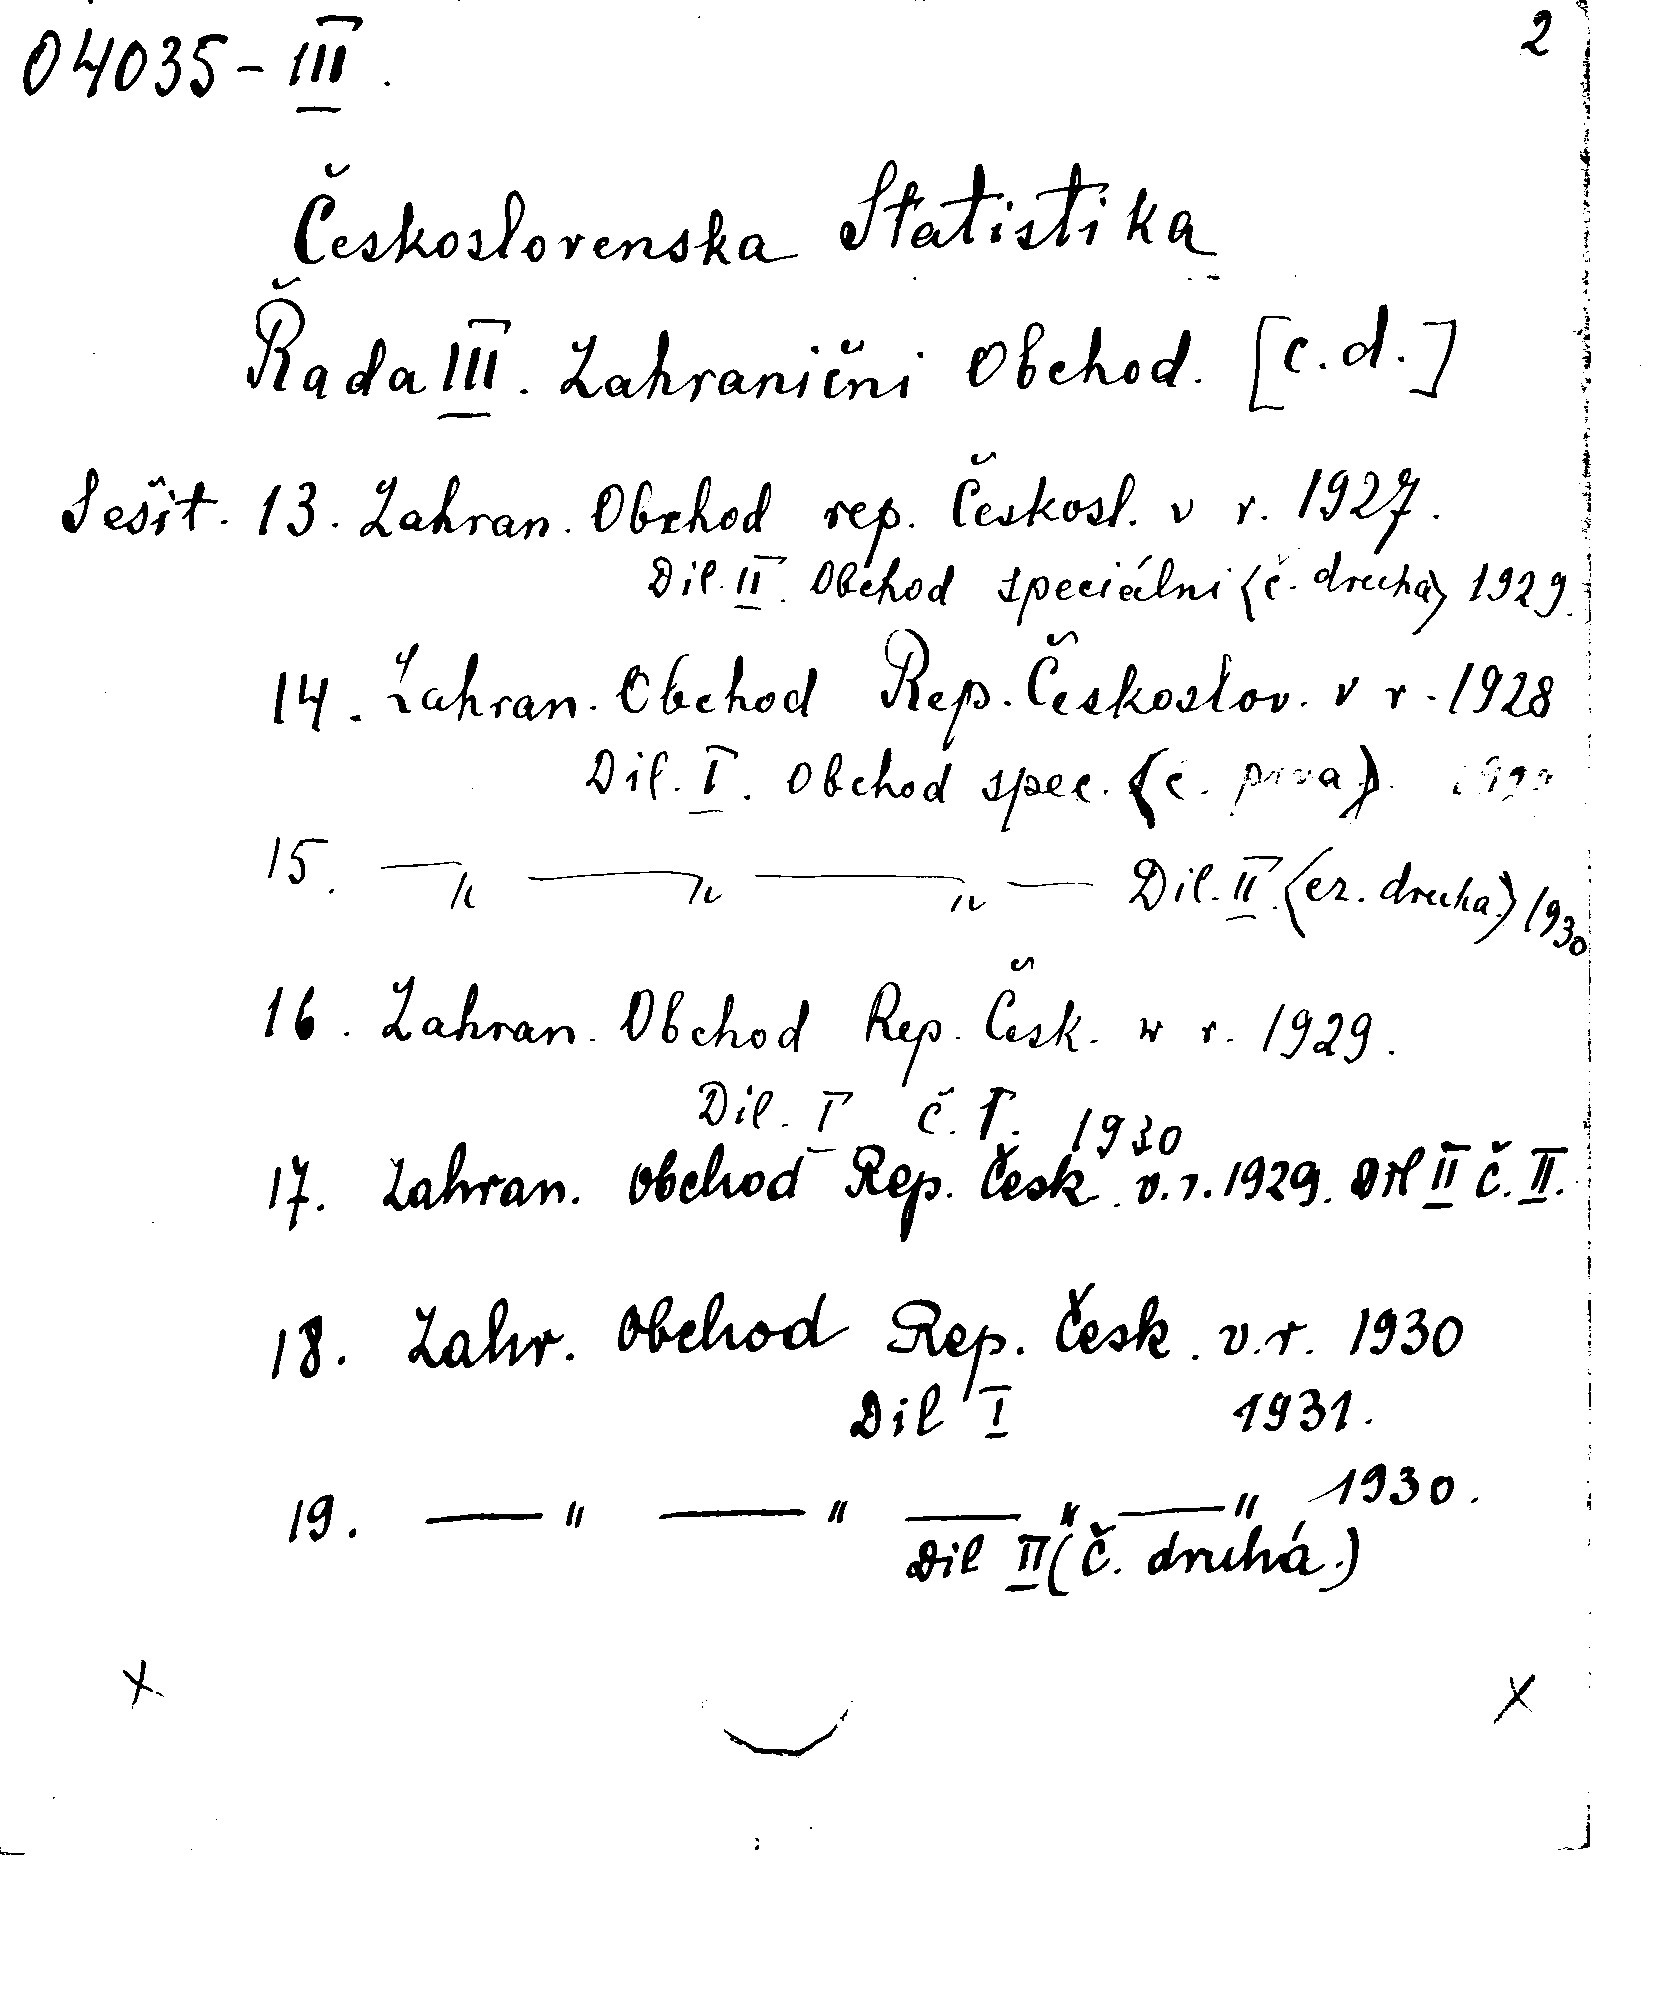 04035-III. 2
Československa Statistika
Řada III. Zahranični Obchod. [c.d.]
Sešit. 13. Zahran. Obchod rep. Českosl. v r. 1927.
Dil. II. Obchod speciálni (č. druha) 1929.
14. Zahran. Obchod Rep. Českoslov. v r. 1928
Dil. I. Obchod spec. (č. prva).
15. —〃— —〃— —〃— Dil. II. (cz. druha.) 1930
16. Zahran. Obchod Rep. Česk. w r. 1929.
Dil. I č. I. 1930
17. Zahran. Obchod Rep. Česk. v. r. 1929. Dil II č. II.
18. Zahr. Obchod Rep. Česk. v. r. 1930
Dil I 1931.
19. —〃 —〃 —〃 —〃 1930.
Dil II (č. druhá.)